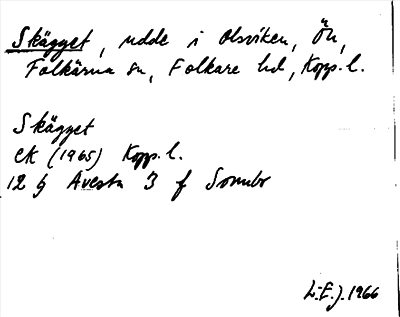 Skägget, udde i Olsviken, Ön,
Folkärna sn, Folkare hd, Kopp. l.
Skägget
ek (1965) Kopp. l.
12 G Avesta 3 f Sonnbo
L-E. J. 1966